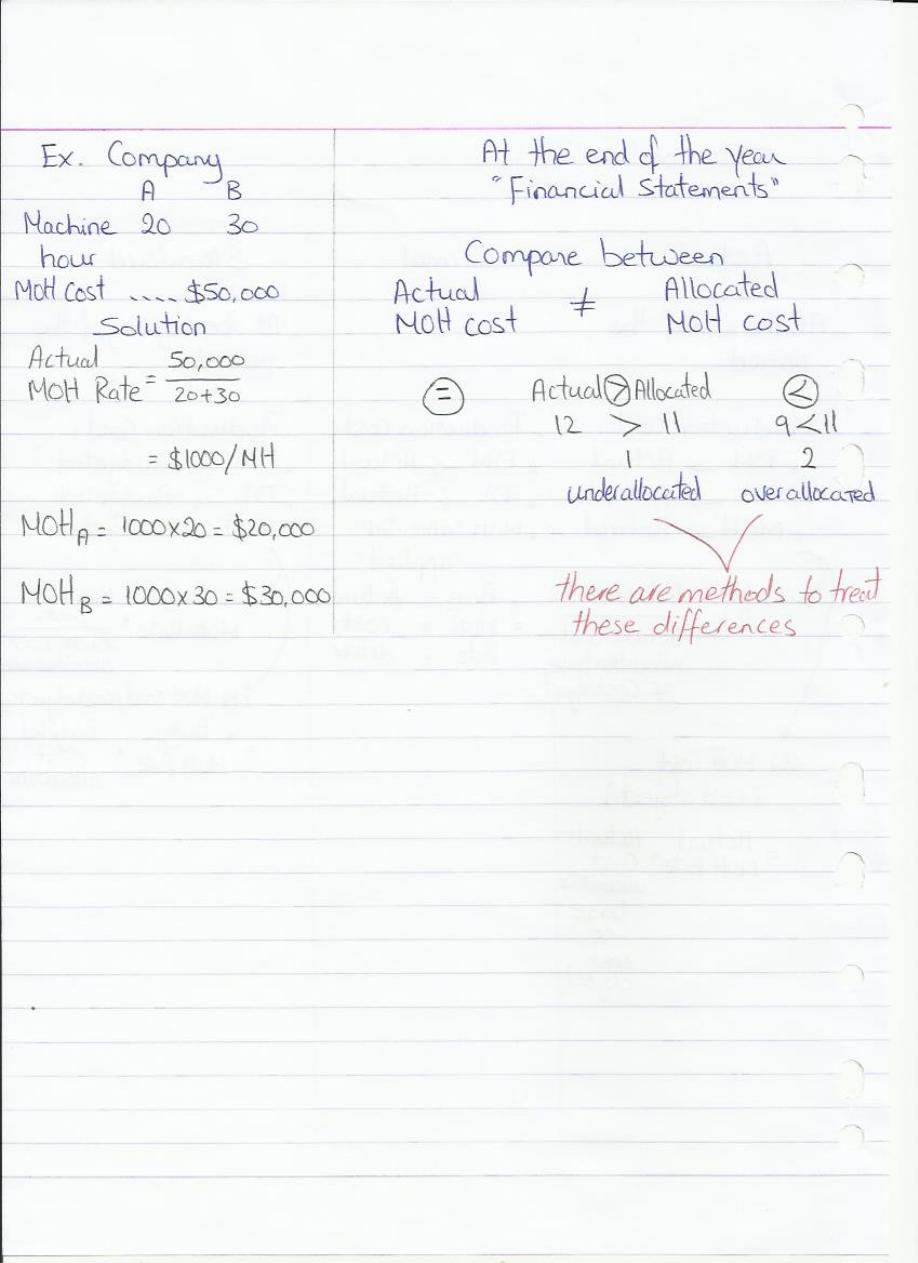 Ex. Company
A B
Machine 20 30
hour
MOH cost .... $50,000
Solution
Actual 50,000
MOH Rate = 20+30
= $1000/MH
MOH A = 1000×20 = $20,000
MOH B = 1000×30 = $30,000
At the end of the year
"Financial Statements"
Compare between
Actual ≠ Allocated
MOH cost MOH cost
= Actual > Allocated <
12 > 11 9 < 11
1 2
underallocated overallocated
there are methods to treat
these differences